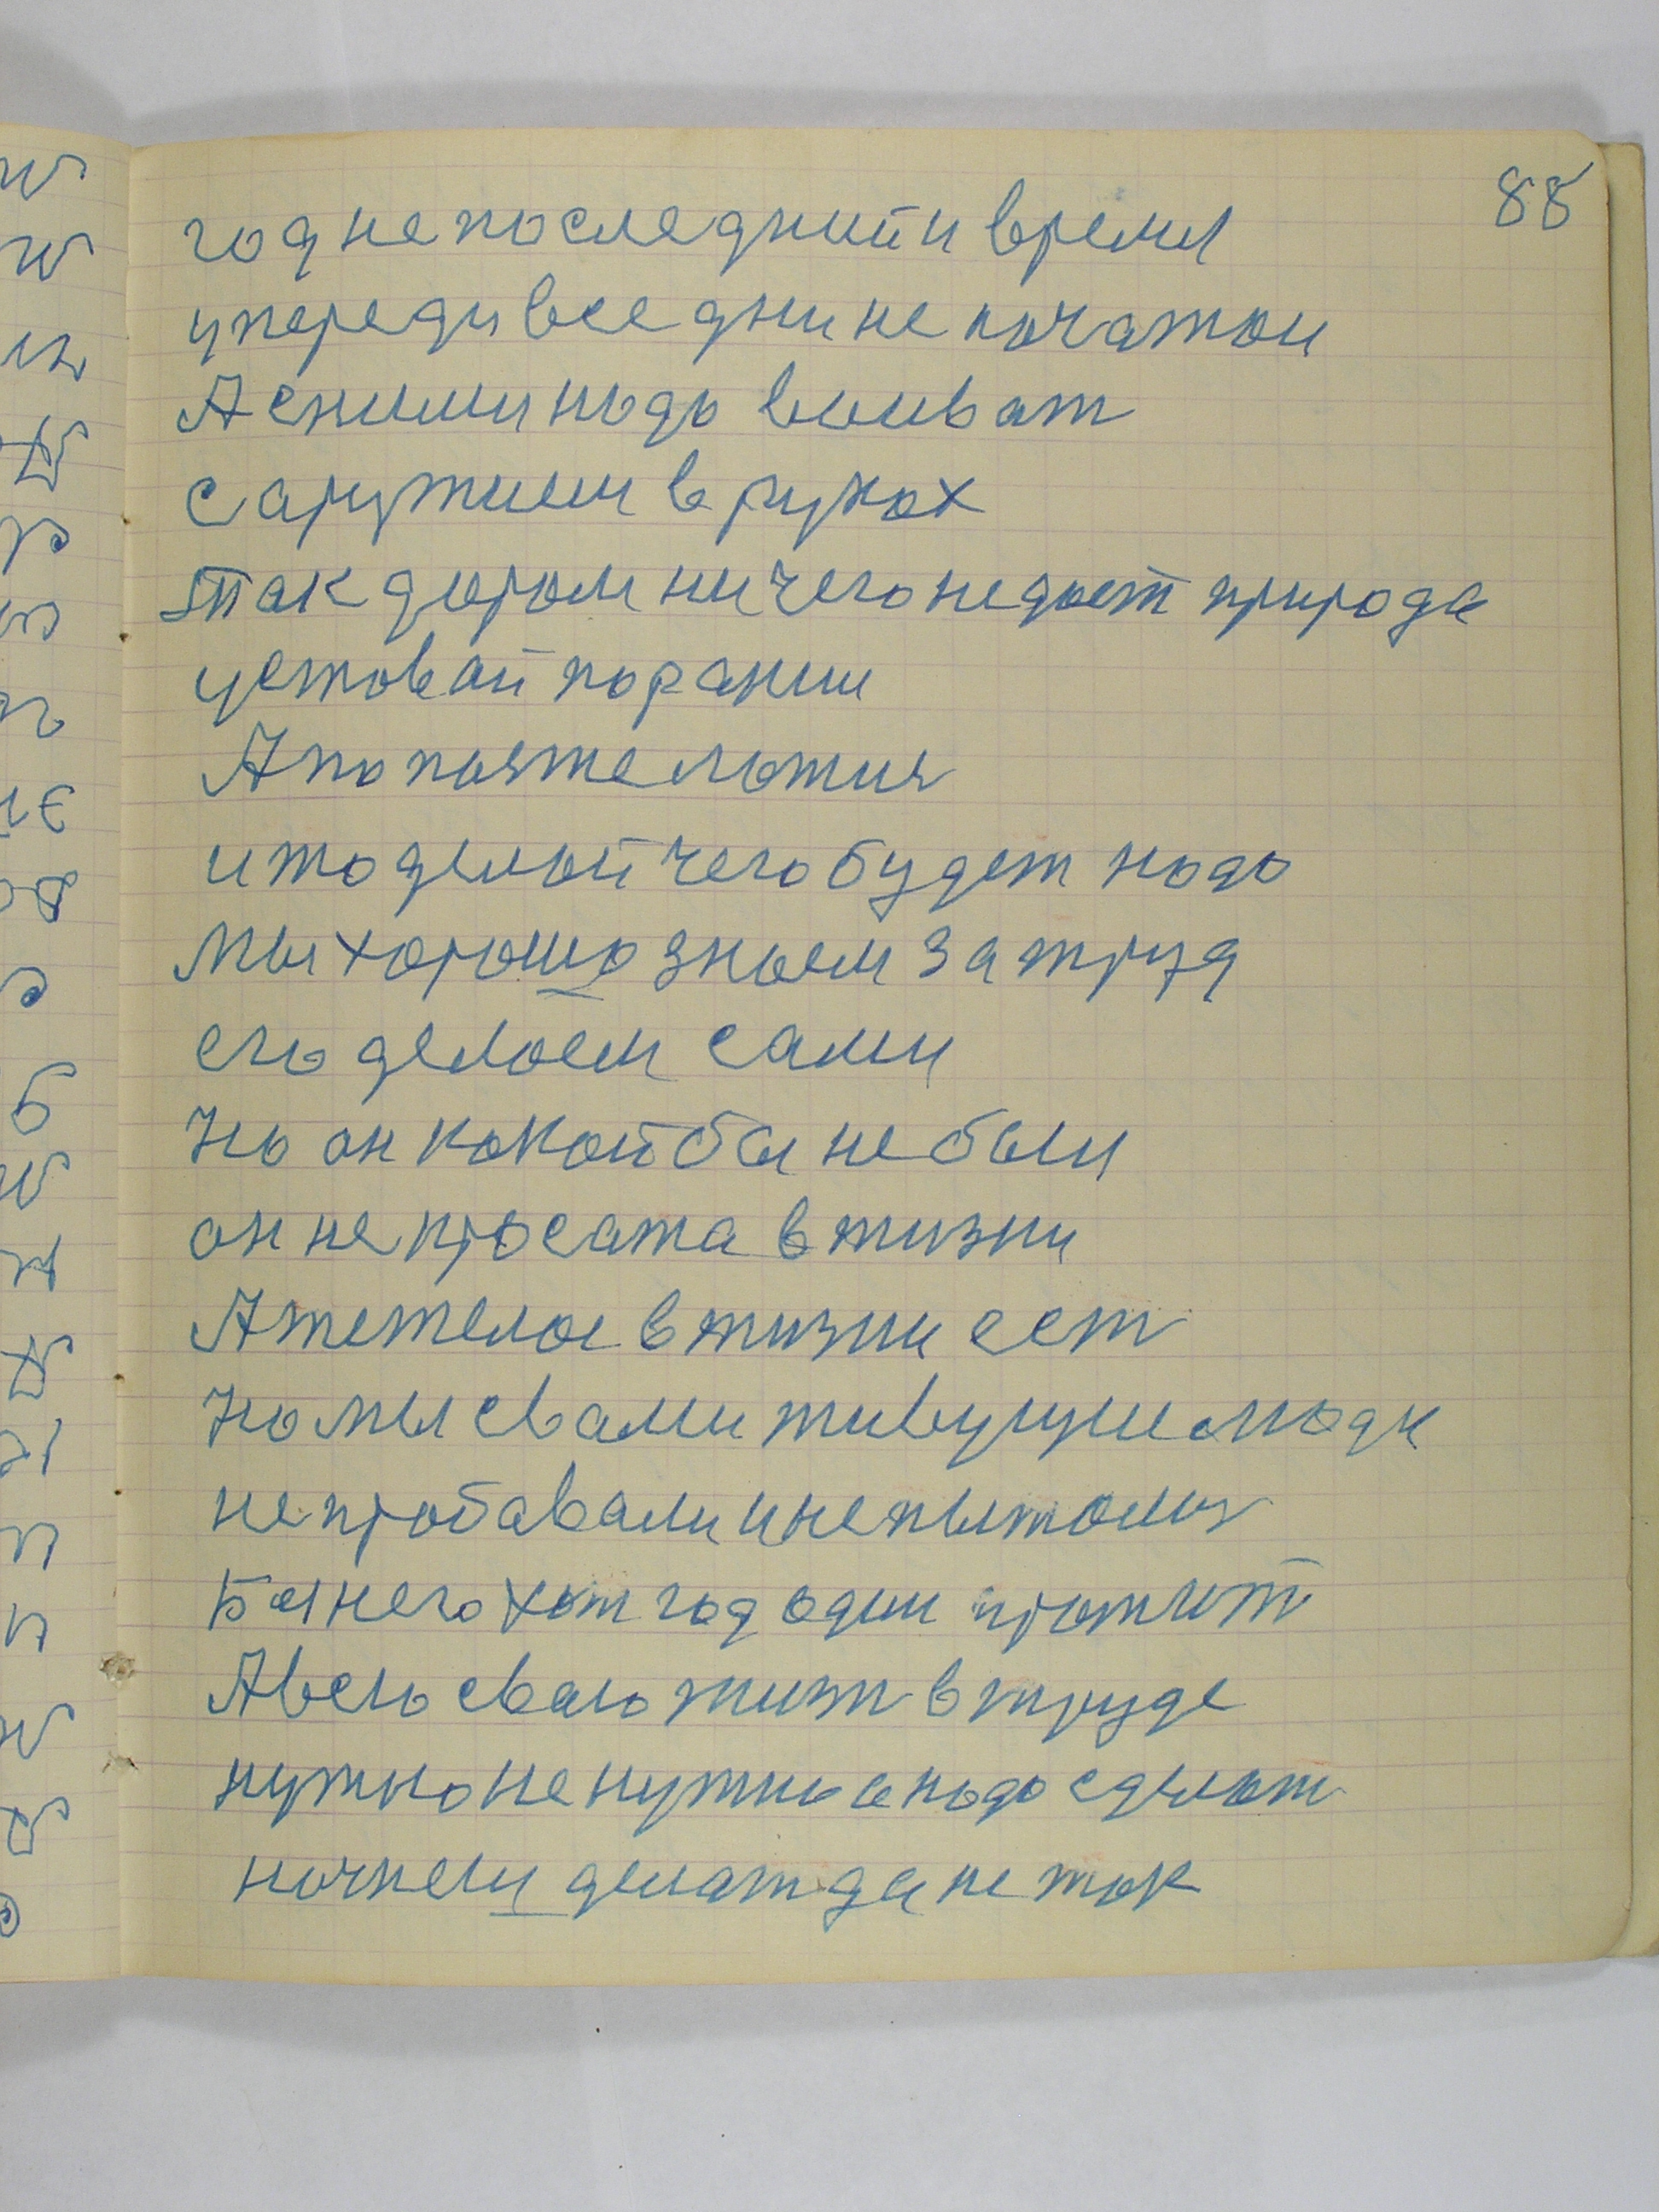 88
год не последний и время
упереди все дни не початои
А сними надо воиват
с аружием в руках
Так даром ничего не дает природа
уставай пораниш
А попожже ложися
и то делай чего будет надо
Мы хорошо знаем за труд
его делаем сами
Но он какой бы не был
он не просата в жизни
А тежелое в жизни ест
Но мы свами живущие люди
не пробавали и не пытолис
Без него хот год один прожит
А всю сваю жизн в труде
нужно не нужно а надо сделат
начнеш делат да не так